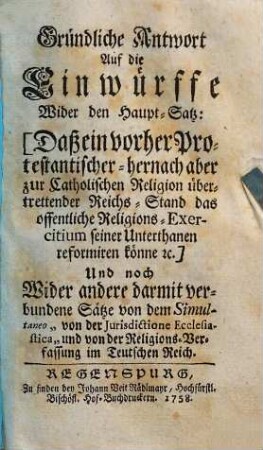 Gründliche Antwort
Auf die
Einwürffe
Wider den Haupt-Satz:
[Daß ein vorher Pro-
testantischer-hernach aber
zur Catholischen Religion über-
trettender Reichs-Stand das
offentliche Religions-Exer-
citium seiner Unterthanen
reformiren könne ꝛc.]
Und noch
Wider andere darmit ver-
bundene Sätze von dem Simul-
taneo„ von der Jurisdictione Ecclesia-
stica„ und von der Religions-Ver-
fassung im Teutschen Reich.
REGENSPURG,
Zu finden bey Johann Veit Rädlmayr, Hochfürstl.
Bischöfl. Hof-Buchdruckern. 1758.